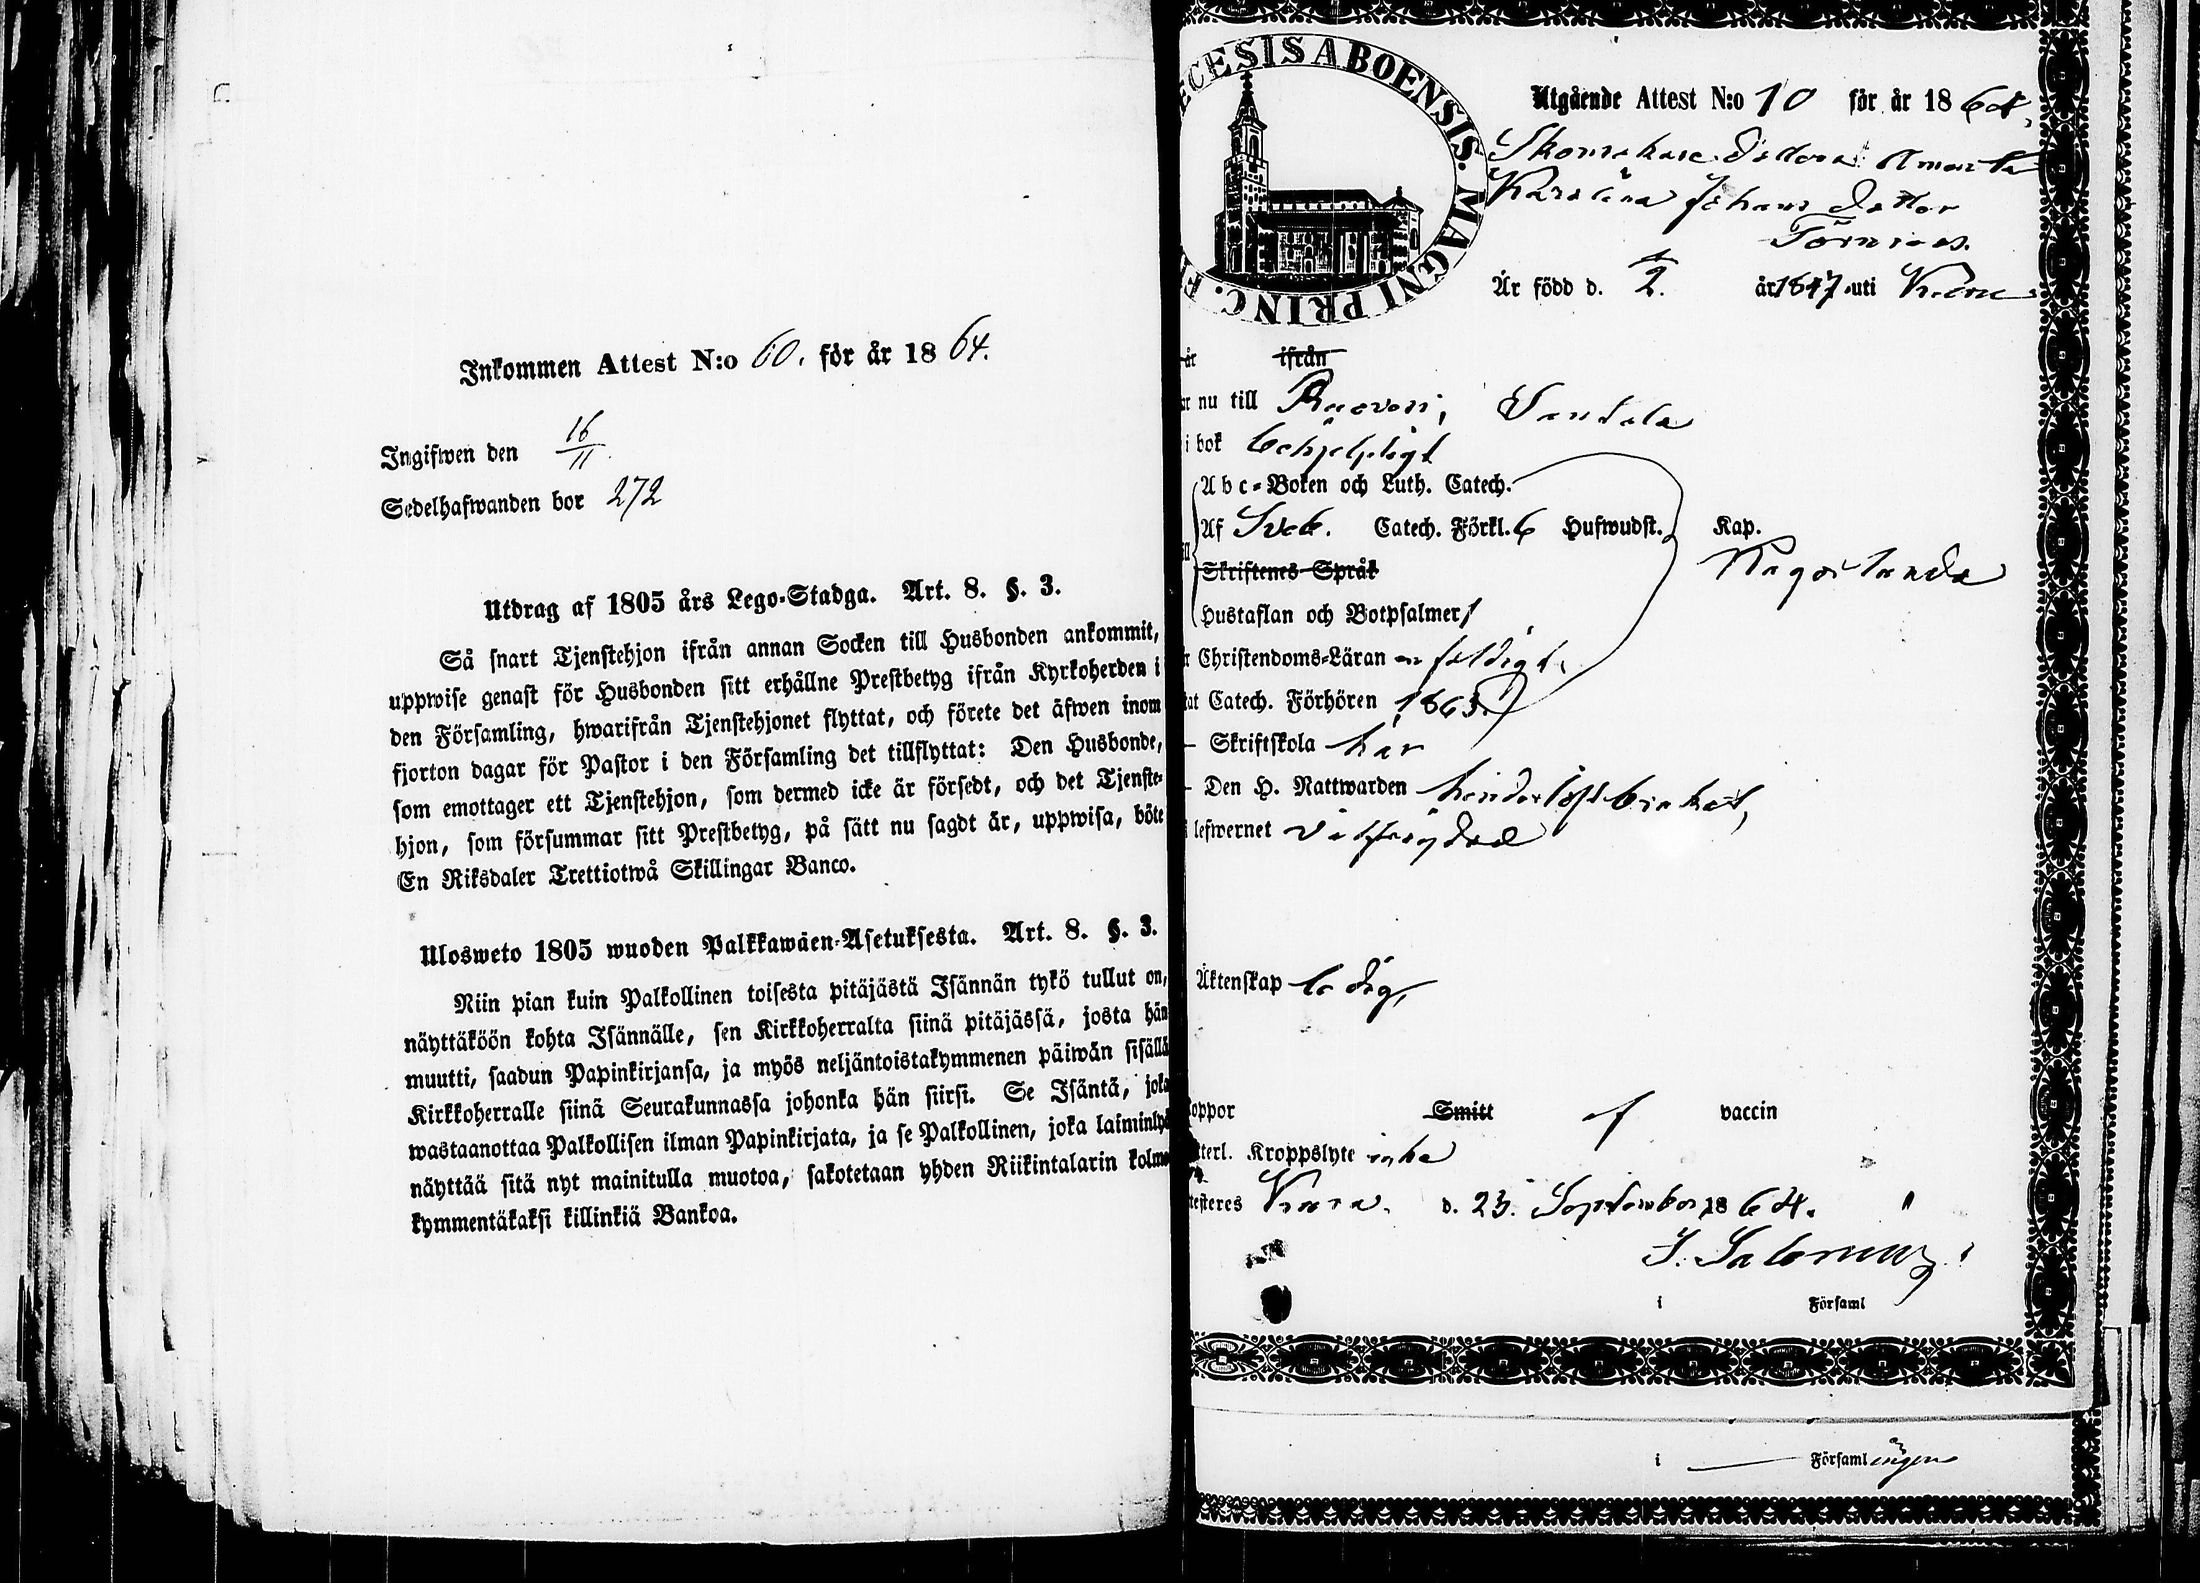 Inkommen Attest N:o 60. för år 1864.
Ingifwen den 16/11.
Sedelhafwanden bor 272
Utdrag af 1805 års Lego-Stadga. Art. 8. §. 3.
Så snart Tjenstehjon ifrån annan Socken till Husbonden ankommit,
uppwise genast för Husbonden sitt erhållne Prestbetyg ifrån Kyrkoherden i
den Församling, hwarifrån Tjenstehjonet flyttat, och förete det äfwen inom
fjorton dagar för Pastor i den Församling det tillflyttat: Den Husbonde,
som emottager ett Tjenstehjon, som dermed icke är försedt, och det Tjenste-
hjon, som försummar sitt Prestbetyg, på sätt nu sagdt är, uppwisa, böte
En Riksdaler Trettiotwå Skillingar Banco.
Ulosweto 1805 wuoden Palkkawäen-Asetuksesta. Art. 8. §. 3.
Niin pian kuin Palkollinen toisesta pitäjästä Isännän tykö tullut on,
näyttäköön kohta Isännälle, sen Kirkkoherralta siinä pitäjässä, josta hän
muutti, saadun Papinkirjansa, ja myös neljäntoistakymmenen päiwän sisällä
Kirkkoherralle siinä Seurakunnassa johonka hän siirsi. Se Isäntä, joka
wastaanottaa Palkollisen ilman Papinkirjata, ja se Palkollinen, joka laiminlyö
näyttää sitä nyt mainitulla muotoa, sakotetaan yhden Riikintalarin kolme
kymmentäkaksi killinkiä Bankoa.
CESIS ABOENSIS. MAGNI PRINC. F
Utgående Attest N:o 10 för år 1864.
Skomakare Dottern Amanda
Karolina Johans dotter
Törnroos.
År född d. 2. år 1847 uti
ifrån
nu till
i bok behjelpligt
Abc-Boken och Luth. Catech.
Af Sveb. Catech. Förkl. 6 Hufwudst. Kap.
Skriftenes Språk
Hustaflan och Botpsalmer
Christendoms-Läran enfaldigt,
Catech. Förhören 1863.
Skriftskola här
Den H. Nattwarden hinderlöst brukat,
lefwernet
Äktenskap ledig,
oppor Smitt af vaccin
terl. Kroppslyte icke
testeres d. 23. September 1864.
i Församl
i Församlingen